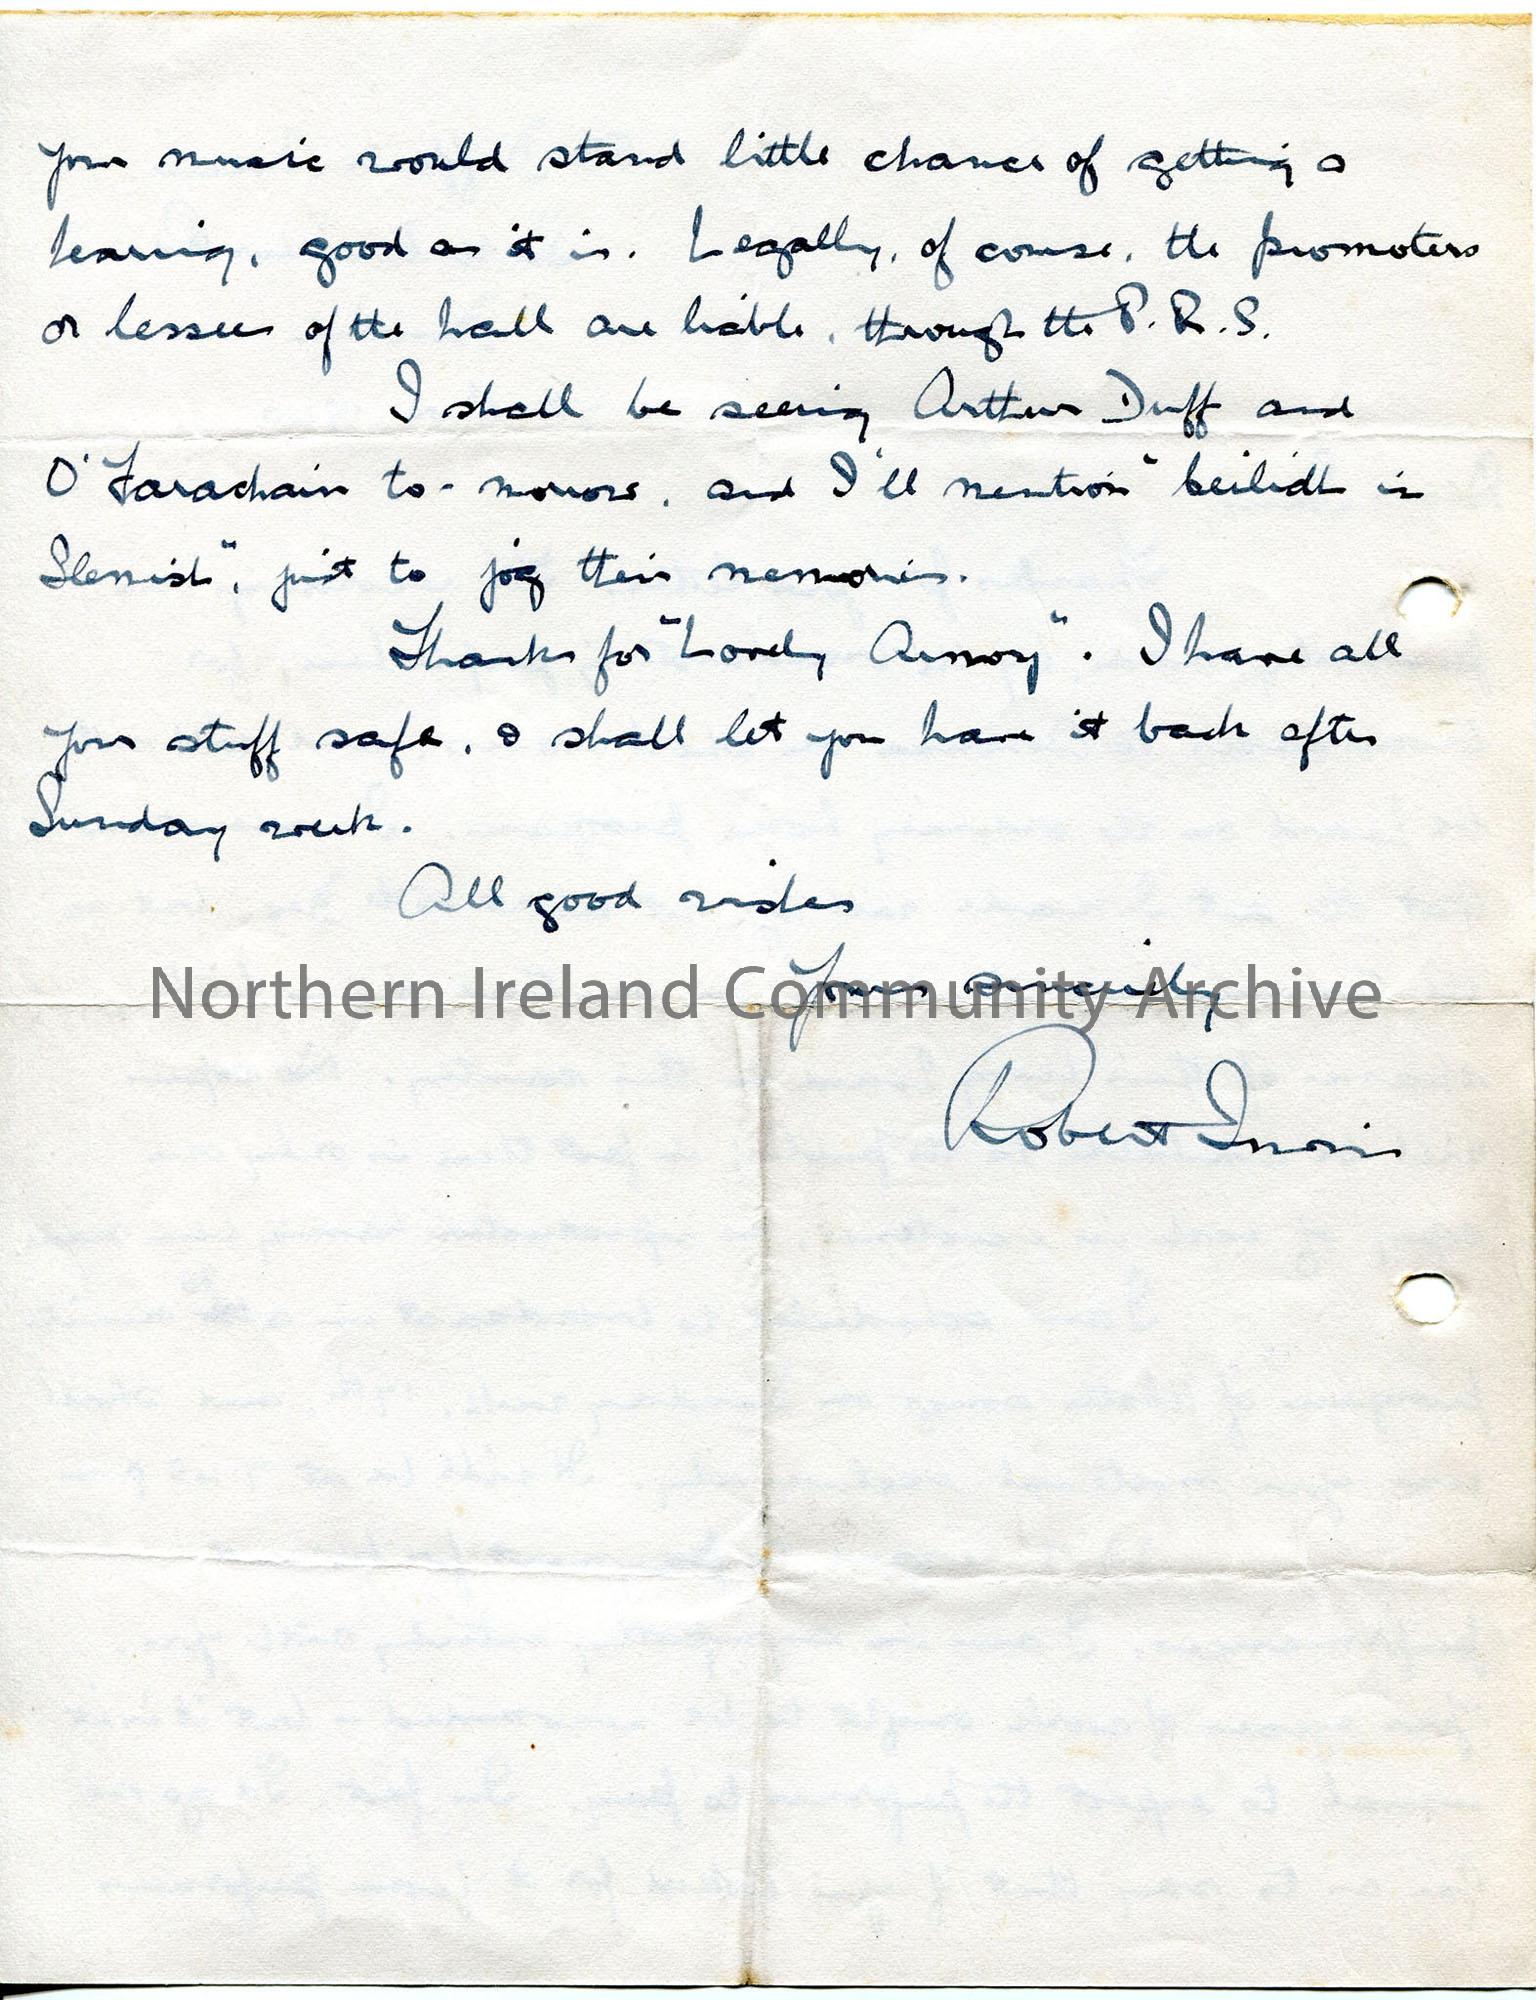 your music would stand little chance of getting a
hearing, good as it is. Legally, of course, the promoters
or lessees of the hall are liable, through the P.R.S.
I shall be seeing Arthur Duff and
O'Farachain to-morrow, and I'll mention "Ceilidh in
Slemish", just to jog their memories.
Thanks for "Lovely Armoy". I have all
your stuff safe, & shall let you have it back after
Sunday week.
All good wishes
Yours sincerely
Northern Ireland Community Archive
Robert Irwin